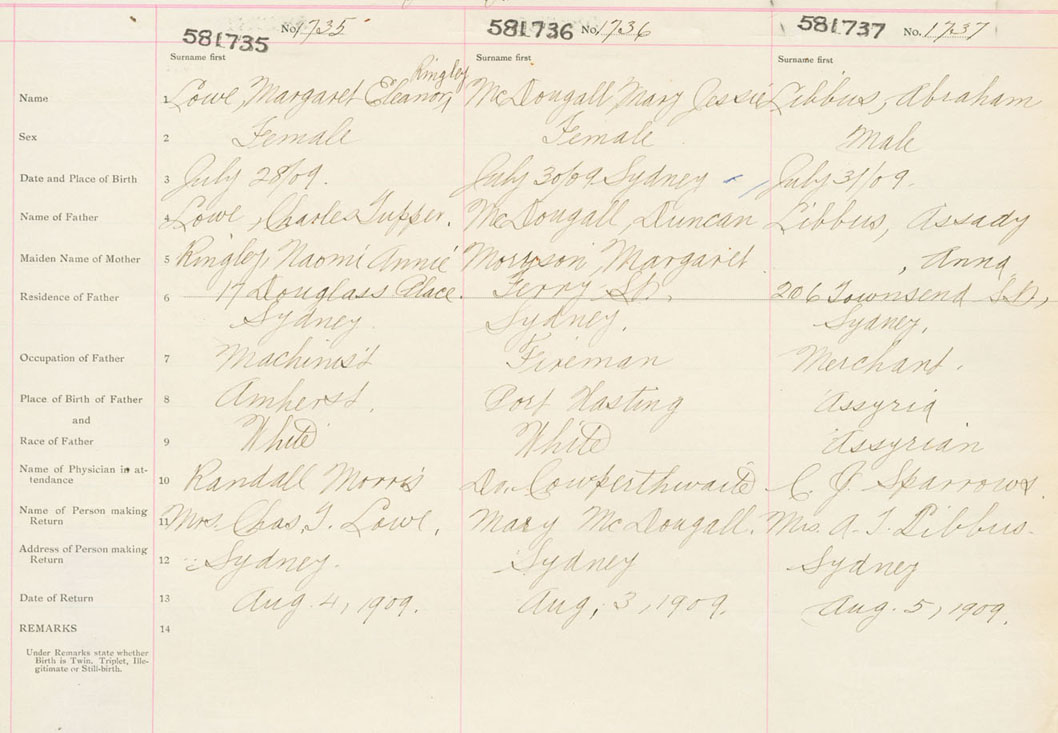 581735 No. 1735 581736 No. 1736 581737 No. 1737
Surname first Surname first Surname first
Ringley
Name 1 Lowe, Margaret Eleanor, McDougall, Mary Jessie Libbus, Abraham
Sex 2 Female Female Male
Date and Place of Birth 3 July 28/09. July 30/09 Sydney July 31/09.
Name of Father 4 Lowe, Charles Tupper. McDougall, Duncan Libbus, Assady
Maiden Name of Mother 5 Ringley, Naomi Annie Morrison, Margaret , Anna
Residence of Father 6 17 Douglass Place. Ferry St. 206 Townsend St.,
Sydney. Sydney. Sydney.
Occupation of Father 7 Machinist Fireman Merchant.
Place of Birth of Father 8 Amherst. Port Hasting Assyria
and
Race of Father 9 White White Assyrian
Name of Physician in at-
tendance 10 Randall Morris Dr. Cowperthwaite C. J. Sparrows.
Name of Person making
Return 11 Mrs. Chas. T. Lowe. Mary McDougall. Mrs. A. T. Libbus.
Address of Person making
Return 12 Sydney. Sydney Sydney
Date of Return 13 Aug. 4, 1909. Aug, 3, 1909. Aug. 5, 1909.
REMARKS 14
Under Remarks state whether
Birth is Twin. Triplet, Ille-
gitimate or Still-birth.